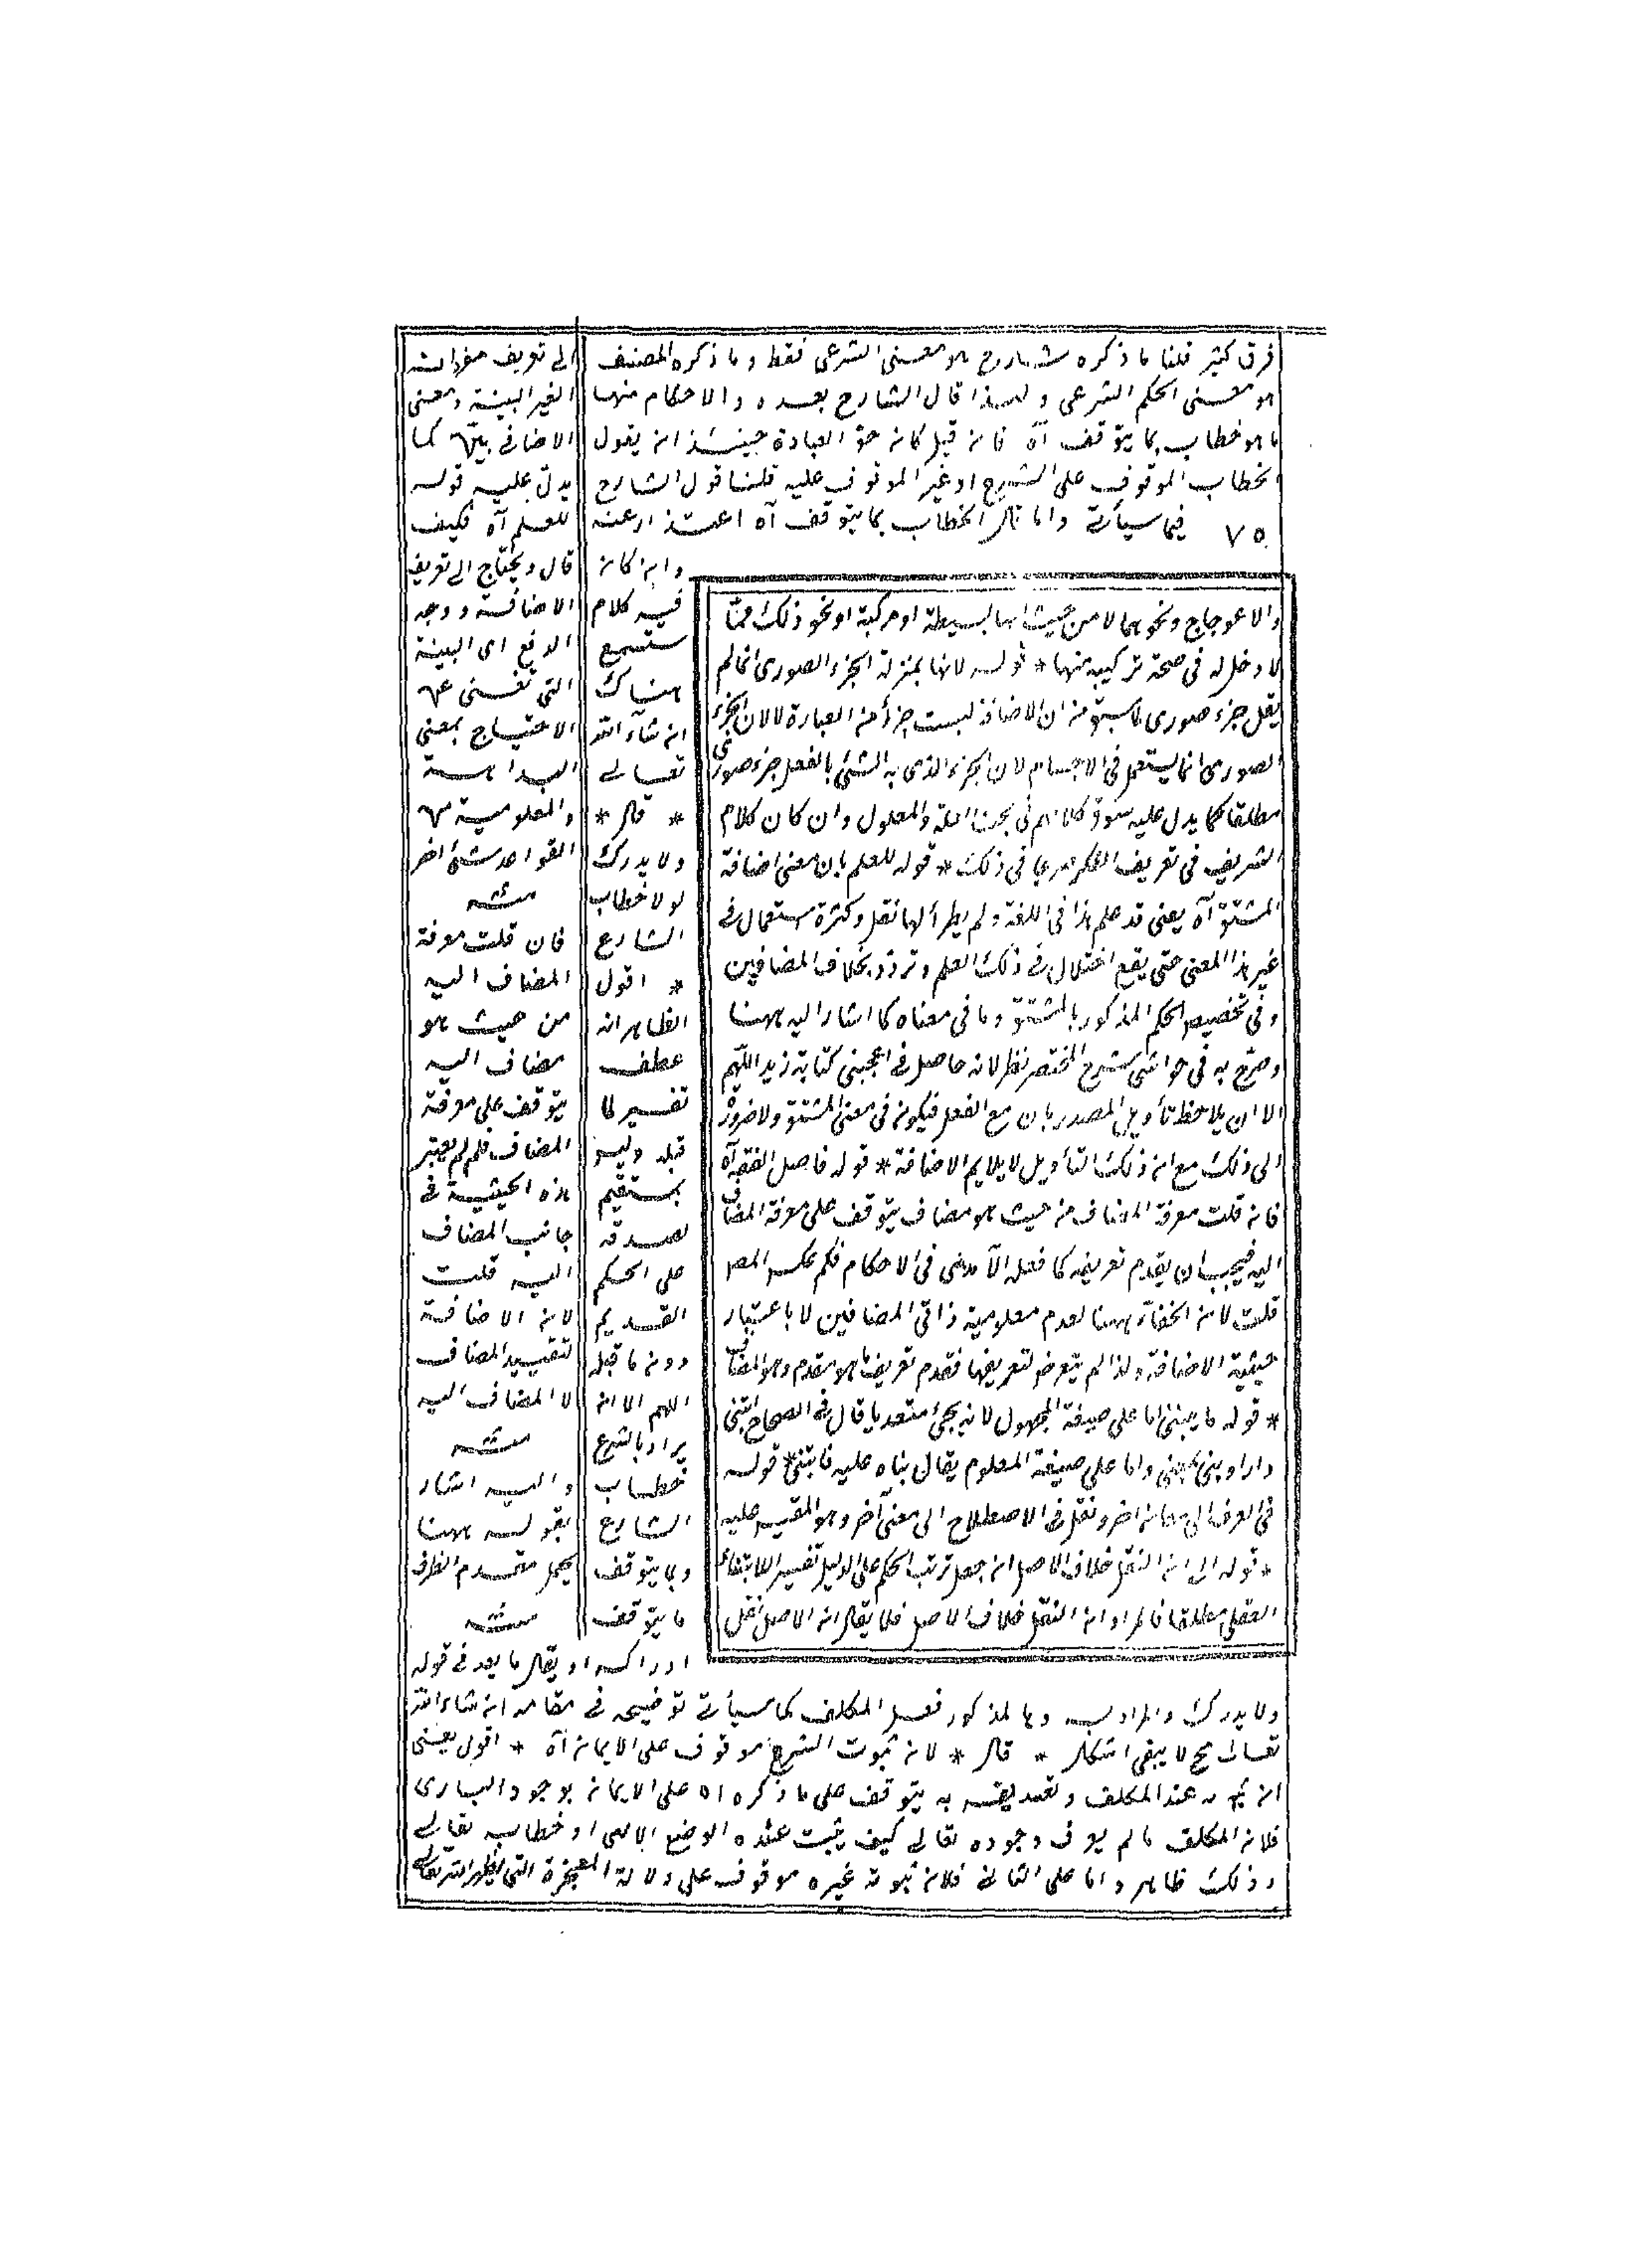 فرق كثير قلنا ما ذكره الشارح هو معنى الشرعى فقط و ما ذكره المصنف
هو معنى الحكم الشرعى و لهذا قال الشارح بعده و الاحكام منها
ما هو خطاب بما يتوقف آه فان قيل كان حق العبادة حينئذ ان يقول
بخطاب الموقوف على الشرع او غير الموقوف عليه قلنا قول الشارح
٧٥ فيما سيأتى و اما الخطاب بما يتوقف آه اعتذار عنه
و ان كان
فيه كلام
ستسمع
هناك
ان شاء الله
تعالى
* قال *
ولا يدرك
لولا خطاب
الشارع
* اقول
الظاهر انه
عطف
تفسير لما
قبله وليس
بمستقيم
لصدقه
على الحكم
القديم
دون ما قبله
اللهم الا ان
يراد بالشرع
خطاب
الشارع
وبما يتوقف
ما يتوقف
ادراكه او يقال ما بعد فى قوله
ولا يدرك والمراد بـ وما المذكور فعل المكلف كما سيأتى توضيحه فى مقامه ان شاء الله
تعالى مح لا يبقى اشكال * قال * لان ثبوت الشرع موقوف على الايمان آه * اقول يعنى
ان عند المكلف و تصديقه به يتوقف على ما ذكره اه على الايمان بوجود البارى
فلان المكلف ما لم يعرف وجوده تعالى كيف يثبت عنده الوضع الالهى او خطابه تعالى
و ذلك ظاهر و اما على الثانى فلان ثبوته غيره موقوف على دلالة المعجزة التى اظهر الله تعالى
والاعوجاج ونحوهما لا من حيث انها بسيطة او مركبة او نحو ذلك مما
لا دخل له فى صحة تركيبه منها * قوله لانها بمنزلة الجزء الصورى انما لم
يقل جزء صورى لما سبق من ان الاضافة ليست جزأ من العبارة لا لان الجزء
الصورى انما يستعمل فى الاجسام لان الجزء الذى به الشئ بالفعل جزء صورى
مطلقا كما يدل عليه سوق كلامهم فى بحث العلة والمعلول وان كان كلام
الشريف فى تعريف الفكر فى ذلك * قوله للعلم بان معنى اضافة
المشتق آه يعنى قد علم هذا فى اللغة ولم يطرأ لها نقل وكثرة استعمال فى
غير هذا المعنى حتى يقع اختلال فى ذلك العلم وتردد بخلاف المضافين
وفى تخصيص الحكم المذكور بالمشتق وما فى معناه كما اشار اليه ههنا
وصرح به فى حواشى شرح المختصر نظر لانه حاصل فى اعجبنى كتابة زيد اللهم
الا ان يلاحظ تأويل المصدر بان مع الفعل فيكون فى معنى المشتق ولا ضرورة
الى ذلك مع ان ذلك التأويل لا يلايم الاضافة * قوله فاصل الفقه آه
فان قلت معرفة المضاف من حيث هو مضاف يتوقف على معرفة المضاف
اليه فيجب ان يقدم تعريفه كما فعله الآمدى فى الاحكام فلم عكس المصر
قلت لان الخفاء ههنا لعدم معلومية ذاتى المضافين لا باعتبار
حيثية الاضافة ولذا لم يتعرض لتعريفها فقدم تعريف ما هو مقدم وهو المضاف
* قوله ما يبتنى اما على صيغة المجهول لانه يجئ متعديا قال فى الصحاح ابتنى
دارا وبنى بمعنى واما على صيغة المعلوم يقال بناه عليه فابتنى * قوله
فى العرف الى معان اخر ونقل فى الاصطلاح الى معنى آخر وهو المقيس عليه
* قوله الى ان النقل خلاف الاصل ان جعل ترتب الحكم على الدليل تفسير الابتناء
العقلى مطلقا فالمراد ان النقل خلاف الاصل فلا يقال ان الاصل نقل
الى تعريف مفردات
الغير البينة ومعنى
الاضافى بيّن كما
يدل عليه قوله
للعلم آه فكيف
قال ويحتاج الى تعريف
الاضافة ووجه
الدفع اى البينة
التى تغنى عن
الاحتياج بمعنى
البداهة
والمعلومية من
القواعد شئ اخر
منه
فان قلت معرفة
المضاف اليه
من حيث هو
مضاف اليه
يتوقف على معرفة
المضاف فلم لم يعتبر
هذه الحيثية فى
جانب المضاف
اليه قلت
لان الاضافة
لتقييد المضاف
لا المضاف اليه
منه
واليه اشار
بقوله ههنا
يجعل مقدم الظرف
منه